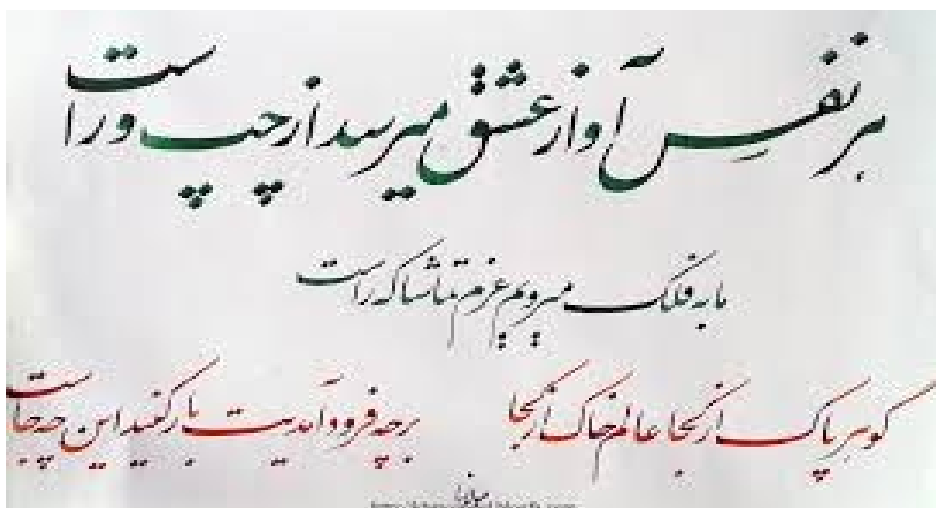 هر نفس آواز عشق میرسد از چپ و راست
ما به فلک میرویم عزم تماشا که راست
گوهر پاک از کجا عالم خاک از کجا برچه فرود آمدیت بار کنید این چه جاست
مولانا